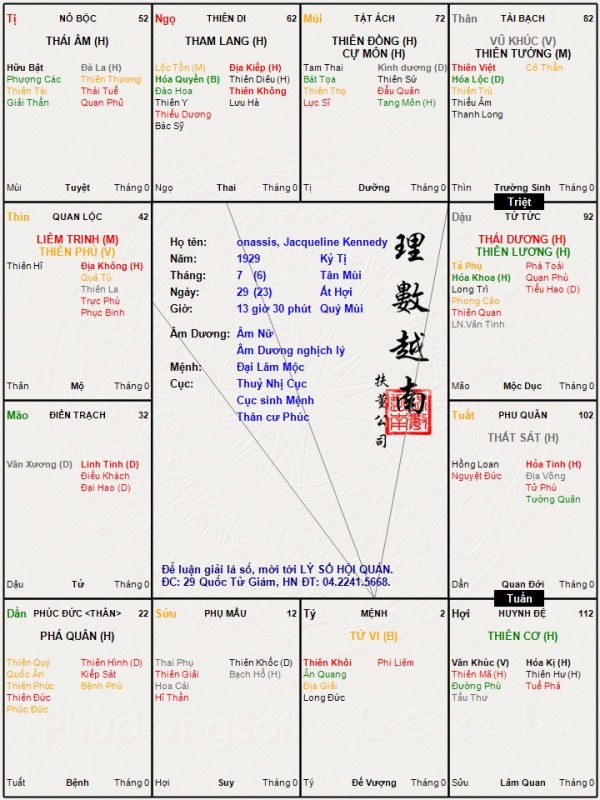 Tị NÔ BỘC 52
THÁI ÂM (H)
Hữu Bật Đà La (H)
Phượng Các Thiên Thương
Thiên Tài Thái Tuế
Giải Thần Quan Phủ
Mùi Tuyệt Tháng 0
Ngọ THIÊN DI 62
THAM LANG (H)
Lộc Tồn (M) Địa Kiếp (H)
Hóa Quyền (B) Thiên Diêu (H)
Đào Hoa Thiên Không
Thiên Y Lưu Hà
Thiếu Dương
Bác Sỹ
Ngọ Thai Tháng 0
Mùi TẬT ÁCH 72
THIÊN ĐỒNG (H)
CỰ MÔN (H)
Tam Thai Kình dương (D)
Bát Tọa Thiên Sứ
Thiên Thọ Đẩu Quân
Lực Sĩ Tang Môn (H)
Tị Dưỡng Tháng 0
Thân TÀI BẠCH 82
VŨ KHÚC (V)
THIÊN TƯỚNG (M)
Thiên Việt Cô Thần
Hóa Lộc (D)
Thiên Trù
Thiếu Âm
Thanh Long
Thìn Trường Sinh Tháng 0
Triệt
Thìn QUAN LỘC 42
LIÊM TRINH (M)
THIÊN PHỦ (V)
Thiên Hĩ Địa Không (H)
Quả Tú
Thiên La
Trực Phù
Phục Binh
Thân Mộ Tháng 0
Họ tên: onassis, Jacqueline Kennedy
Năm: 1929 Kỷ Tị
Tháng: 7 (6) Tân Mùi
Ngày: 29 (23) Ất Hợi
Giờ: 13 giờ 30 phút Quý Mùi
Âm Dương: Âm Nữ
Âm Dương nghịch lý
Mệnh: Đại Lâm Mộc
Cục: Thuỷ Nhị Cục
Cục sinh Mệnh
Thân cư Phúc
理數越南
扶董公司
Dậu TỬ TỨC 92
THÁI DƯƠNG (H)
THIÊN LƯƠNG (H)
Tả Phụ Phá Toái
Hóa Khoa (H) Quan Phù
Long Trì Tiểu Hao (D)
Phong Cáo
Thiên Quan
LN.Văn Tinh
Mão Mộc Dục Tháng 0
Mão ĐIỀN TRẠCH 32
Văn Xương (D) Linh Tinh (D)
Điếu Khách
Đại Hao (D)
Dậu Tử Tháng 0
Tuất PHU QUÂN 102
THẤT SÁT (H)
Hồng Loan Hỏa Tinh (H)
Nguyệt Đức Địa Võng
Tử Phù
Tướng Quân
Dần Quan Đới Tháng 0
Để luận giải lá số, mời tới LÝ SỐ HỘI QUÁN.
ĐC: 29 Quốc Tử Giám, HN ĐT: 04.2241.5668.
Tuần
Dần PHÚC ĐỨC <THÂN> 22
PHÁ QUÂN (H)
Thiên Quý Thiên Hình (D)
Quốc Ấn Kiếp Sát
Thiên Phúc Bệnh Phù
Thiên Đức
Phúc Đức
Tuất Bệnh Tháng 0
Sửu PHỤ MẪU 12
Thai Phụ Thiên Khốc (D)
Thiên Giải Bạch Hổ (H)
Hoa Cái
Hĩ Thần
Hợi Suy Tháng 0
Tý MỆNH 2
TỬ VI (B)
Thiên Khôi Phi Liêm
Ân Quang
Địa Giải
Long Đức
Tý Đế Vượng Tháng 0
Hợi HUYNH ĐỆ 112
THIÊN CƠ (H)
Văn Khúc (V) Hóa Kị (H)
Thiên Mã (H) Thiên Hư (H)
Đường Phù Tuế Phá
Tấu Thư
Sửu Lâm Quan Tháng 0